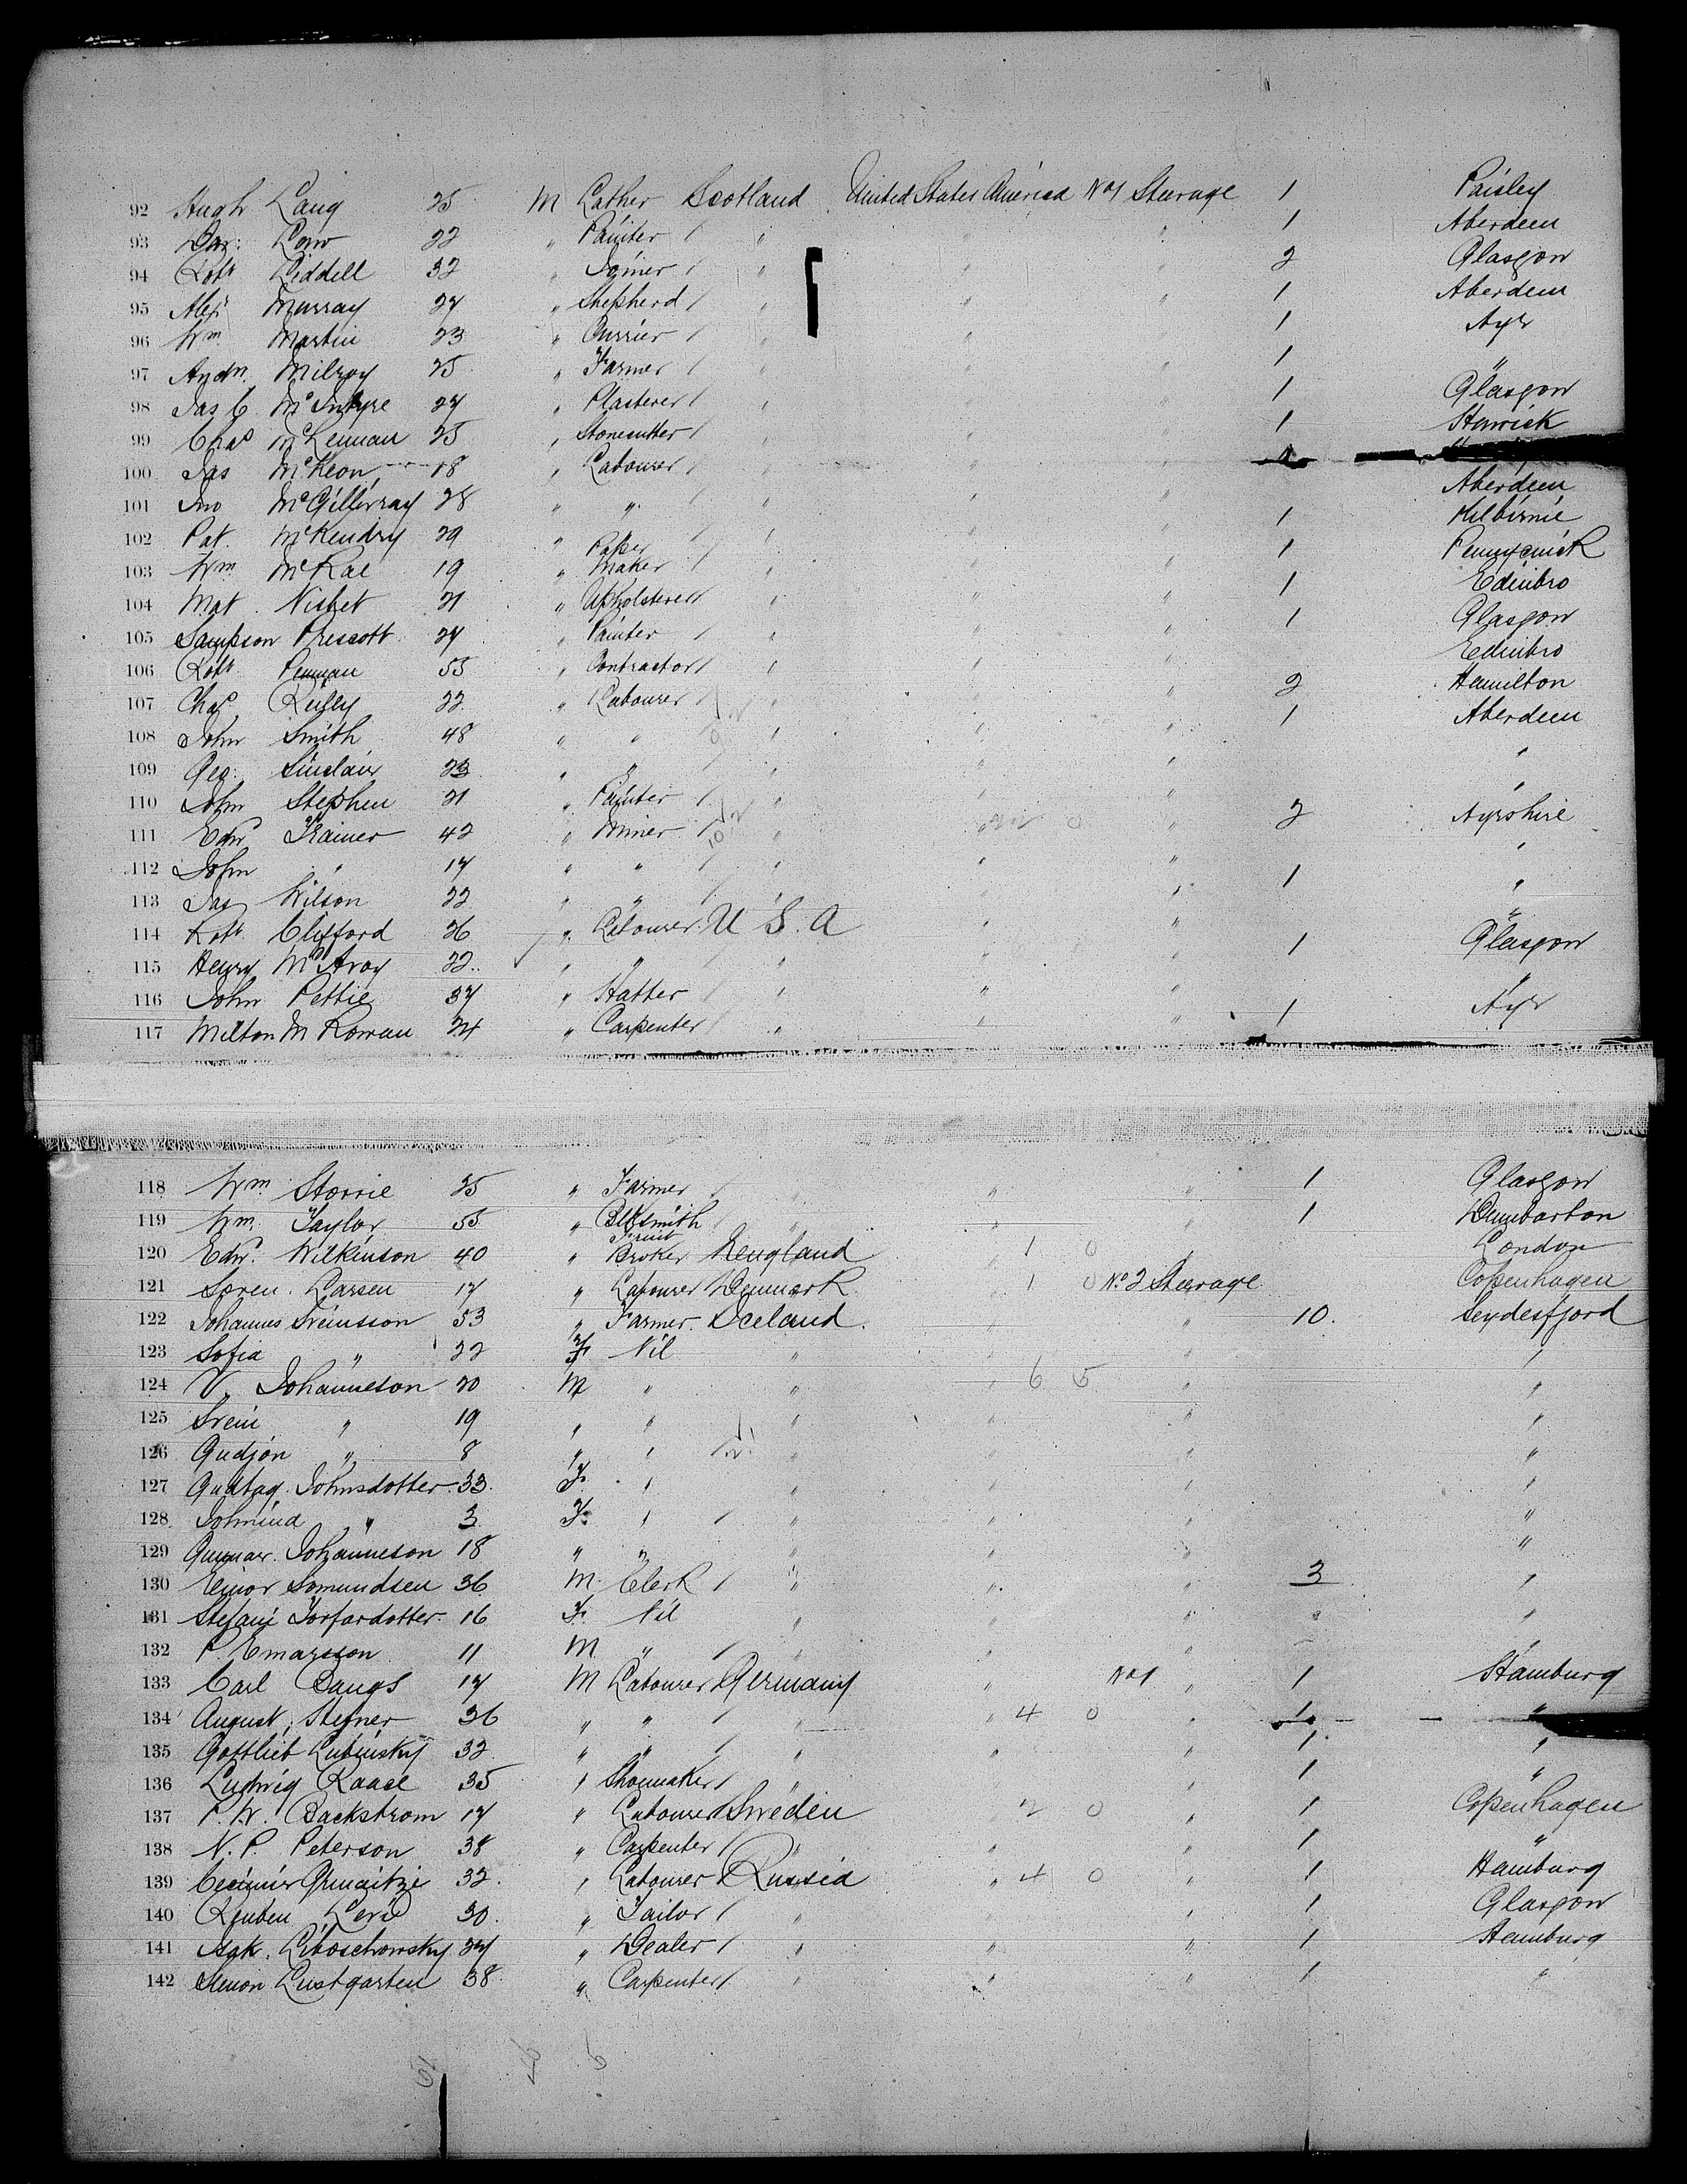 92 Hugh Lang 25 M Lather Scotland United States America No 1 Steerage 1 Paisley
93 Dav: Low 22 " Painter / " " " 1 Aberdeen
94 Robt Liddell 32 " Joiner / " " " 2 Glasgow
95 Alexr Murray 27 " Shepherd / " " " 1 Aberdeen
96 Wm Martin 23 " Currier / " " " 1 Ayr
97 Andw. Milroy 25 " Farmer / " " " 1 "
98 Jas C. McIntyre 27 " Plasterer / " " " 1 Glasgow
99 Chas McLennan 25 " Stonecutter / " " " 1 Hawick
100 Jas McKeon 18 " Labourer / " " "
101 Jno McGillivray 28 " " / " " " Aberdeen
102 Pat. McKendry 29 " " " " 1 Kilbirnie
103 Wm McRae 19 " Paper Maker / " " " 1 Pennycuick
104 Mat. Nisbet 21 " Upholsterer / " " " 1 Edinbro
105 Sampson Prescott 27 " Painter / " " " 1 Glasgow
106 Robt Penman 55 " Contractor / " " " Edinbro
107 Chas Reilly 22 " Labourer / " " " 2 Hamilton
108 John Smith 48 " " " " " 1 Aberdeen
109 Geo: Sinclair 23 " " / " " " "
110 John Stephen 21 " Painter / " " " "
111 Edw Trainer 42 " Miner / " " 22 0 " 2 Ayrshire
112 John " 17 " " / " " " "
113 Jas Wilson 22 " " / " " " 1 "
114 Robt Clifford 26 " Labourer U. S. A " " "
115 Henry McAvoy 22 " " / " " " 1 Glasgow
116 John Pettie 37 " Hatter / " " " "
117 Milton M Rowan 24 " Carpenter / " " " 1 Ayr
118 Wm Storrie 25 " Farmer / " " " 1 Glasgow
119 Wm. Taylor 55 " Blksmith / " " " 1 Dumbarton
120 Edw. Wilkinson 40 " Fruit Broker England " 1 0 " London
121 Soren Larsen 17 " Labourer Denmark " 1 0 No 2 Steerage Copenhagen
122 Johannes Sveinsson 53 " Farmer Iceland " " 10. Seydesfjord
123 Sofia " 22 F Nil " " " "
124 V. Johanneson 20 M " " " 6 5 " "
125 Svein " 19 " " " " " "
126 Gudjon " 8 " " " " " "
127 Johnsdotter 33 F. " " " " "
128 " 3 F. " / " " " "
129 Gunnar Johanneson 18 " " " " " "
130 Einor Somundsen 36 M. Clerk / " " " 3 "
131 Stefani 16 F. Nil " " " "
132 P. Emarsson 11 M " / " " " "
133 Carl Bangs 17 M Labourer Germany " No 1 " 1 Hamburg
134 August Stefner 36 " " / " " 4 0 " 1 "
135 Gottlieb Lubinsky 32 " " / " " " 1 "
136 Ludwig Raase 35 " Shoemaker / " " " 1 "
137 P. W. Backstrom 17 " Labourer Sweden 2 0 " 1 Copenhagen
138 N. P. Peterson 38 " Carpenter / " " " 1 "
139 32 " Labourer Russia " 4 0 " 1 Hamburg
140 Reuben Levi 30 " Tailor / " " " 1 Glasgow
141 Liboschowsky 27 " Dealer / " " " 1 Hamburg
142 Simon Lustgarten 38 " Carpenter / " " " 1 "